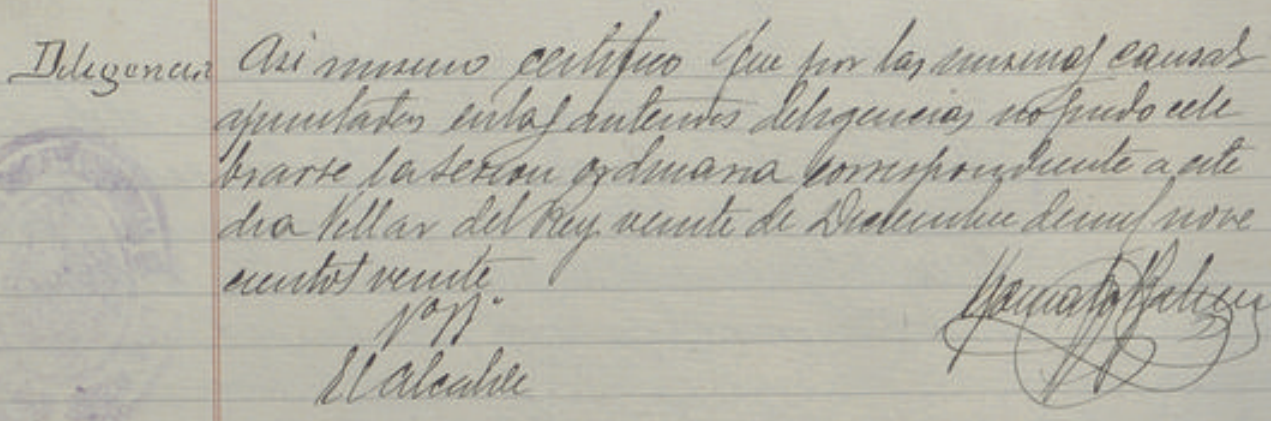 Diligencia Asi mismo certifico que por las mismas causas
apuntadas en las anteriores diligencias no pudo cele
brarse la sesion ordinaria correspondiente a este
dia Villar del Rey veinte de Diciembre de mil nove
cientos veinte
VºBº
El Alcalde